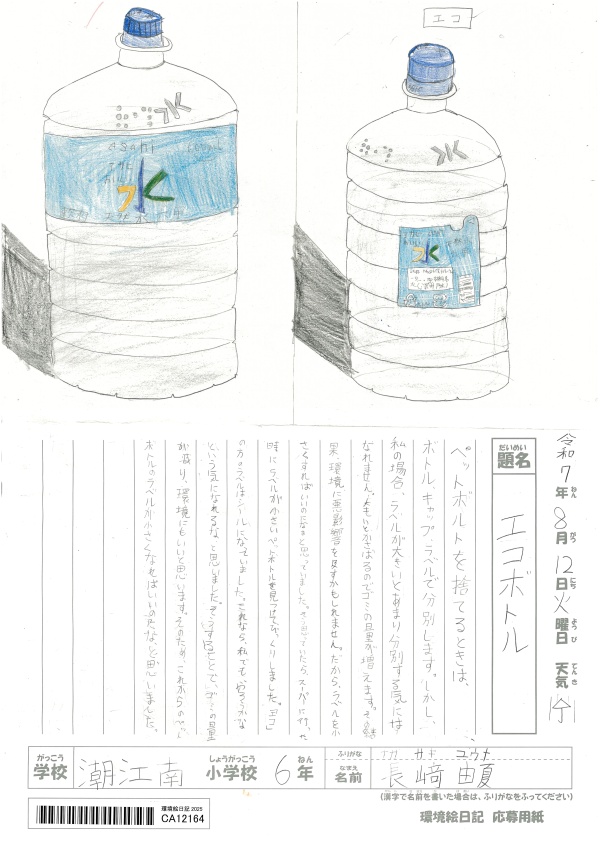 エコ
水
ASAHI
水
水
水
令和7年8月12日火曜日 天気
ねん がつ にち ようび てんき
だいめい
題名
エコボトル
ペットボルトを捨てるときは、
ボトル、キャップ、ラベルで分別します。しかし、
私の場合、ラベルが大きいとあまり分別する気には
なれません。大きいとかさばるのでゴミの量が増えます。その結
果、環境に悪影響を及ぼすかもしれません。だから、ラベルを小
さくすればいいのになと思っていました。そう思っていたら、スーパーに行った
時にラベルが小さいペットボトルを見つけてびっくりしました。「エコ」
の方のラベルはシールになっていました。これなら、私でも
という気になれるな、と思いました。そうすることで、ゴミの量
が減り、環境にもいいと思います。そのため、これからのペット
ボトルのラベルが小さくなればいいのになと思いました。
がっこう しょうがっこう ねん
学校 潮江南 小学校 6年
ふりがな ナガサキ ユウナ
なまえ
名前 長﨑 由夏
(漢字で名前を書いた場合は、ふりがなをふってください)
環境絵日記 2025
CA12164
環境絵日記 応募用紙